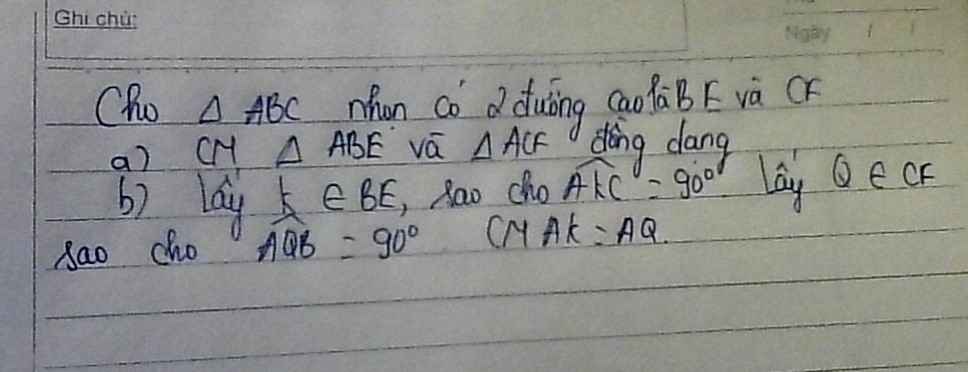 Ghi chú:
Ngày / /
Cho Δ ABC nhọn có 2 đường cao là BE và CF
a) CM Δ ABE và Δ ACF đồng dạng
b) lấy K ∈ BE, sao cho AKC = 90° lấy Q ∈ CF
sao cho AQB = 90° CM AK = AQ.